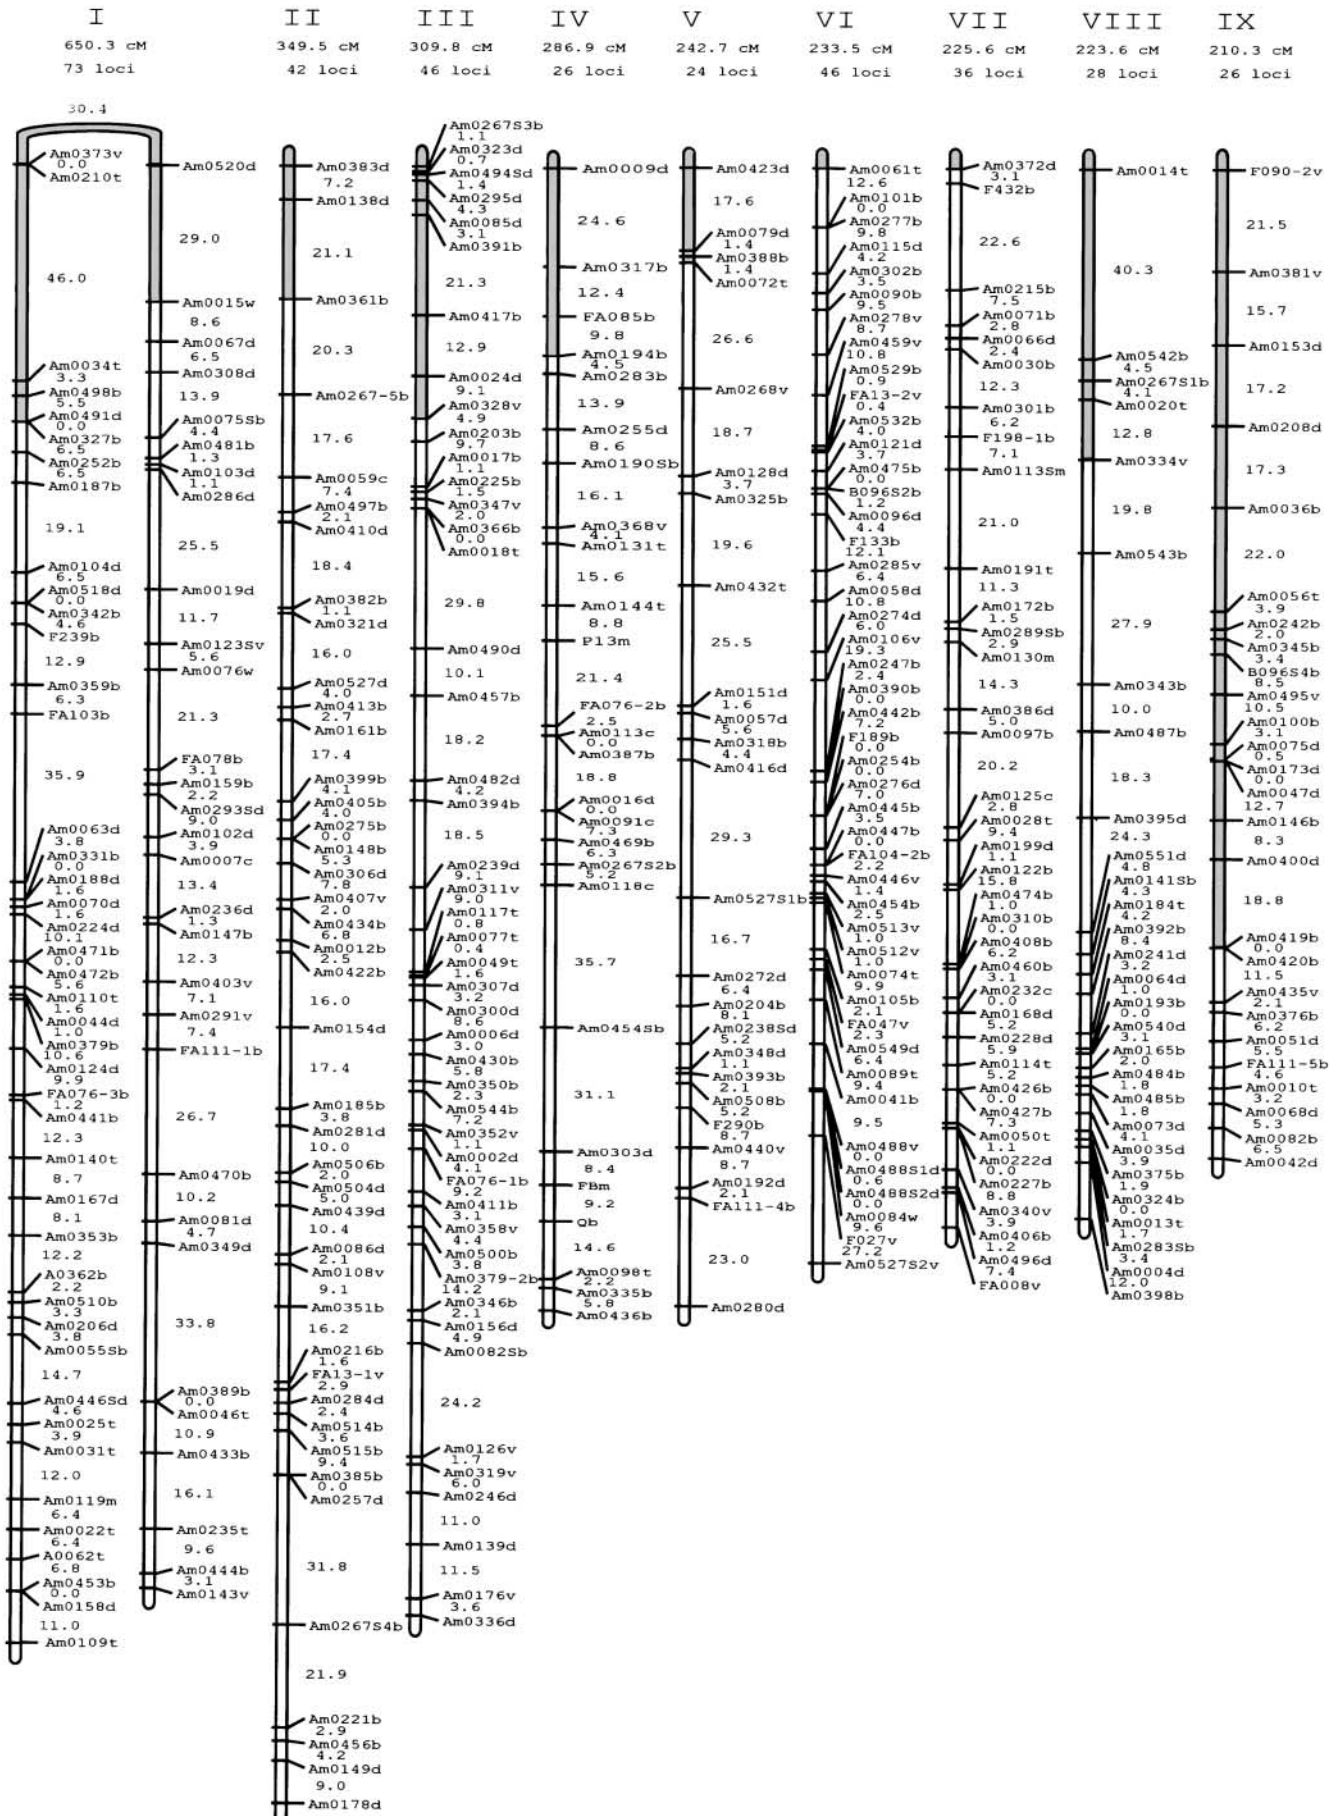 I
650.3 cM
73 loci
30.4
Am0373v
0.0
Am0210t
46.0
Am0034t
3.3
Am0498b
5.5
Am0491d
0.0
Am0327b
6.5
Am0252b
6.5
Am0187b
19.1
Am0104d
6.5
Am0518d
0.0
Am0342b
4.6
F239b
12.9
Am0359b
6.3
FA103b
35.9
Am0063d
3.8
Am0331b
0.0
Am0188d
1.6
Am0070d
1.6
Am0224d
10.1
Am0471b
0.0
Am0472b
5.6
Am0110t
1.6
Am0044d
1.0
Am0379b
10.6
Am0124d
9.9
FA076-3b
1.2
Am0441b
12.3
Am0140t
8.7
Am0167d
8.1
Am0353b
12.2
A0362b
2.2
Am0510b
3.3
Am0206d
3.8
Am0055Sb
14.7
Am0446Sd
4.6
Am0025t
3.9
Am0031t
12.0
Am0119m
6.4
Am0022t
6.4
A0062t
6.8
Am0453b
0.0
Am0158d
11.0
Am0109t
Am0520d
29.0
Am0015w
8.6
Am0067d
6.5
Am0308d
13.9
Am0075Sb
4.4
Am0481b
1.3
Am0103d
1.1
Am0286d
25.5
Am0019d
11.7
Am0123Sv
5.6
Am0076w
21.3
FA078b
3.1
Am0159b
2.2
Am0293Sd
9.0
Am0102d
3.9
Am0007c
13.4
Am0236d
1.3
Am0147b
12.3
Am0403v
7.1
Am0291v
7.4
FA111-1b
26.7
Am0470b
10.2
Am0081d
4.7
Am0349d
33.8
Am0389b
0.0
Am0046t
10.9
Am0433b
16.1
Am0235t
9.6
Am0444b
3.1
Am0143v
II
349.5 cM
42 loci
Am0383d
7.2
Am0138d
21.1
Am0361b
20.3
Am0267-5b
17.6
Am0059c
7.4
Am0497b
2.1
Am0410d
18.4
Am0382b
1.1
Am0321d
16.0
Am0527d
4.0
Am0413b
2.7
Am0161b
17.4
Am0399b
4.1
Am0405b
4.0
Am0275b
0.0
Am0148b
5.3
Am0306d
7.8
Am0407v
2.0
Am0434b
6.8
Am0012b
2.5
Am0422b
16.0
Am0154d
17.4
Am0185b
3.8
Am0281d
10.0
Am0506b
2.0
Am0504d
5.0
Am0439d
10.4
Am0086d
2.1
Am0108v
9.1
Am0351b
16.2
Am0216b
1.6
FA13-1v
2.9
Am0284d
2.4
Am0514b
3.6
Am0515b
9.4
Am0385b
0.0
Am0257d
31.8
Am0267S4b
21.9
Am0221b
2.9
Am0456b
4.2
Am0149d
9.0
Am0178d
III
309.8 cM
46 loci
Am0267S3b
1.1
Am0323d
0.7
Am0494Sd
1.4
Am0295d
4.3
Am0085d
3.1
Am0391b
21.3
Am0417b
12.9
Am0024d
9.1
Am0328v
4.9
Am0203b
9.7
Am0017b
1.1
Am0225b
1.5
Am0347v
2.0
Am0366b
0.0
Am0018t
29.8
Am0490d
10.1
Am0457b
18.2
Am0482d
4.2
Am0394b
18.5
Am0239d
9.1
Am0311v
9.0
Am0117t
0.8
Am0077t
0.4
Am0049t
1.6
Am0307d
3.2
Am0300d
8.6
Am0006d
3.0
Am0430b
5.8
Am0350b
2.3
Am0544b
7.2
Am0352v
1.1
Am0002d
4.1
FA076-1b
9.2
Am0411b
3.1
Am0358v
4.4
Am0500b
3.8
Am0379-2b
14.2
Am0346b
2.1
Am0156d
4.9
Am0082Sb
24.2
Am0126v
1.7
Am0319v
6.0
Am0246d
11.0
Am0139d
11.5
Am0176v
3.6
Am0336d
IV
286.9 cM
26 loci
Am0009d
24.6
Am0317b
12.4
FA085b
9.8
Am0194b
4.5
Am0283b
13.9
Am0255d
8.6
Am0190Sb
16.1
Am0368v
4.1
Am0131t
15.6
Am0144t
8.8
P13m
21.4
FA076-2b
2.5
Am0113c
0.0
Am0387b
18.8
Am0016d
0.0
Am0091c
7.3
Am0469b
6.3
Am0267S2b
5.2
Am0118c
35.7
Am0454Sb
31.1
Am0303d
8.4
FBm
9.2
Qb
14.6
Am0098t
2.2
Am0335b
5.8
Am0436b
V
242.7 cM
24 loci
Am0423d
17.6
Am0079d
1.4
Am0388b
1.4
Am0072t
26.6
Am0268v
18.7
Am0128d
3.7
Am0325b
19.6
Am0432t
25.5
Am0151d
1.6
Am0057d
5.6
Am0318b
4.4
Am0416d
29.3
Am0527S1b
16.7
Am0272d
6.4
Am0204b
8.1
Am0238Sd
5.2
Am0348d
1.1
Am0393b
2.1
Am0508b
5.2
F290b
8.7
Am0440v
8.7
Am0192d
2.1
FA111-4b
23.0
Am0280d
VI
233.5 cM
46 loci
Am0061t
12.6
Am0101b
0.0
Am0277b
9.8
Am0115d
4.2
Am0302b
3.5
Am0090b
9.5
Am0278v
8.7
Am0459v
10.8
Am0529b
0.9
FA13-2v
0.4
Am0532b
4.0
Am0121d
3.7
Am0475b
0.0
B096S2b
1.2
Am0096d
4.4
F133b
12.1
Am0285v
6.4
Am0058d
10.8
Am0274d
6.0
Am0106v
19.3
Am0247b
2.4
Am0390b
0.0
Am0442b
7.2
F189b
0.0
Am0254b
0.0
Am0276d
7.0
Am0445b
3.5
Am0447b
0.0
FA104-2b
2.2
Am0446v
1.4
Am0454b
2.5
Am0513v
1.0
Am0512v
1.0
Am0074t
9.9
Am0105b
2.1
FA047v
2.3
Am0549d
6.4
Am0089t
9.4
Am0041b
9.5
Am0488v
0.0
Am0488S1d
0.6
Am0488S2d
0.0
Am0084w
9.6
F027v
27.2
Am0527S2v
VII
225.6 cM
36 loci
Am0372d
3.1
F432b
22.6
Am0215b
7.5
Am0071b
2.8
Am0066d
2.4
Am0030b
12.3
Am0301b
6.2
F198-1b
7.1
Am0113Sm
21.0
Am0191t
11.3
Am0172b
1.5
Am0289Sb
2.9
Am0130m
14.3
Am0386d
5.0
Am0097b
20.2
Am0125c
2.8
Am0028t
9.4
Am0199d
1.1
Am0122b
15.8
Am0474b
1.0
Am0310b
0.0
Am0408b
6.2
Am0460b
3.1
Am0232c
0.0
Am0168d
5.2
Am0228d
5.9
Am0114t
5.2
Am0426b
0.0
Am0427b
7.3
Am0050t
1.1
Am0222d
0.0
Am0227b
8.8
Am0340v
3.9
Am0406b
1.2
Am0496d
7.4
FA008v
VIII
223.6 cM
28 loci
Am0014t
40.3
Am0542b
4.5
Am0267S1b
4.1
Am0020t
12.8
Am0334v
19.8
Am0543b
27.9
Am0343b
10.0
Am0487b
18.3
Am0395d
24.3
Am0551d
4.8
Am0141Sb
4.3
Am0184t
4.2
Am0392b
8.4
Am0241d
3.2
Am0064d
1.0
Am0193b
0.0
Am0540d
3.1
Am0165b
2.0
Am0484b
1.8
Am0485b
1.8
Am0073d
4.1
Am0035d
3.9
Am0375b
1.9
Am0324b
0.0
Am0013t
1.7
Am0283Sb
3.4
Am0004d
12.0
Am0398b
IX
210.3 cM
26 loci
F090-2v
21.5
Am0381v
15.7
Am0153d
17.2
Am0208d
17.3
Am0036b
22.0
Am0056t
3.9
Am0242b
2.0
Am0345b
3.4
B096S4b
8.5
Am0495v
10.5
Am0100b
3.1
Am0075d
0.5
Am0173d
0.0
Am0047d
12.7
Am0146b
8.3
Am0400d
18.8
Am0419b
0.0
Am0420b
11.5
Am0435v
2.1
Am0376b
6.2
Am0051d
5.5
FA111-5b
4.6
Am0010t
3.2
Am0068d
5.3
Am0082b
6.5
Am0042d